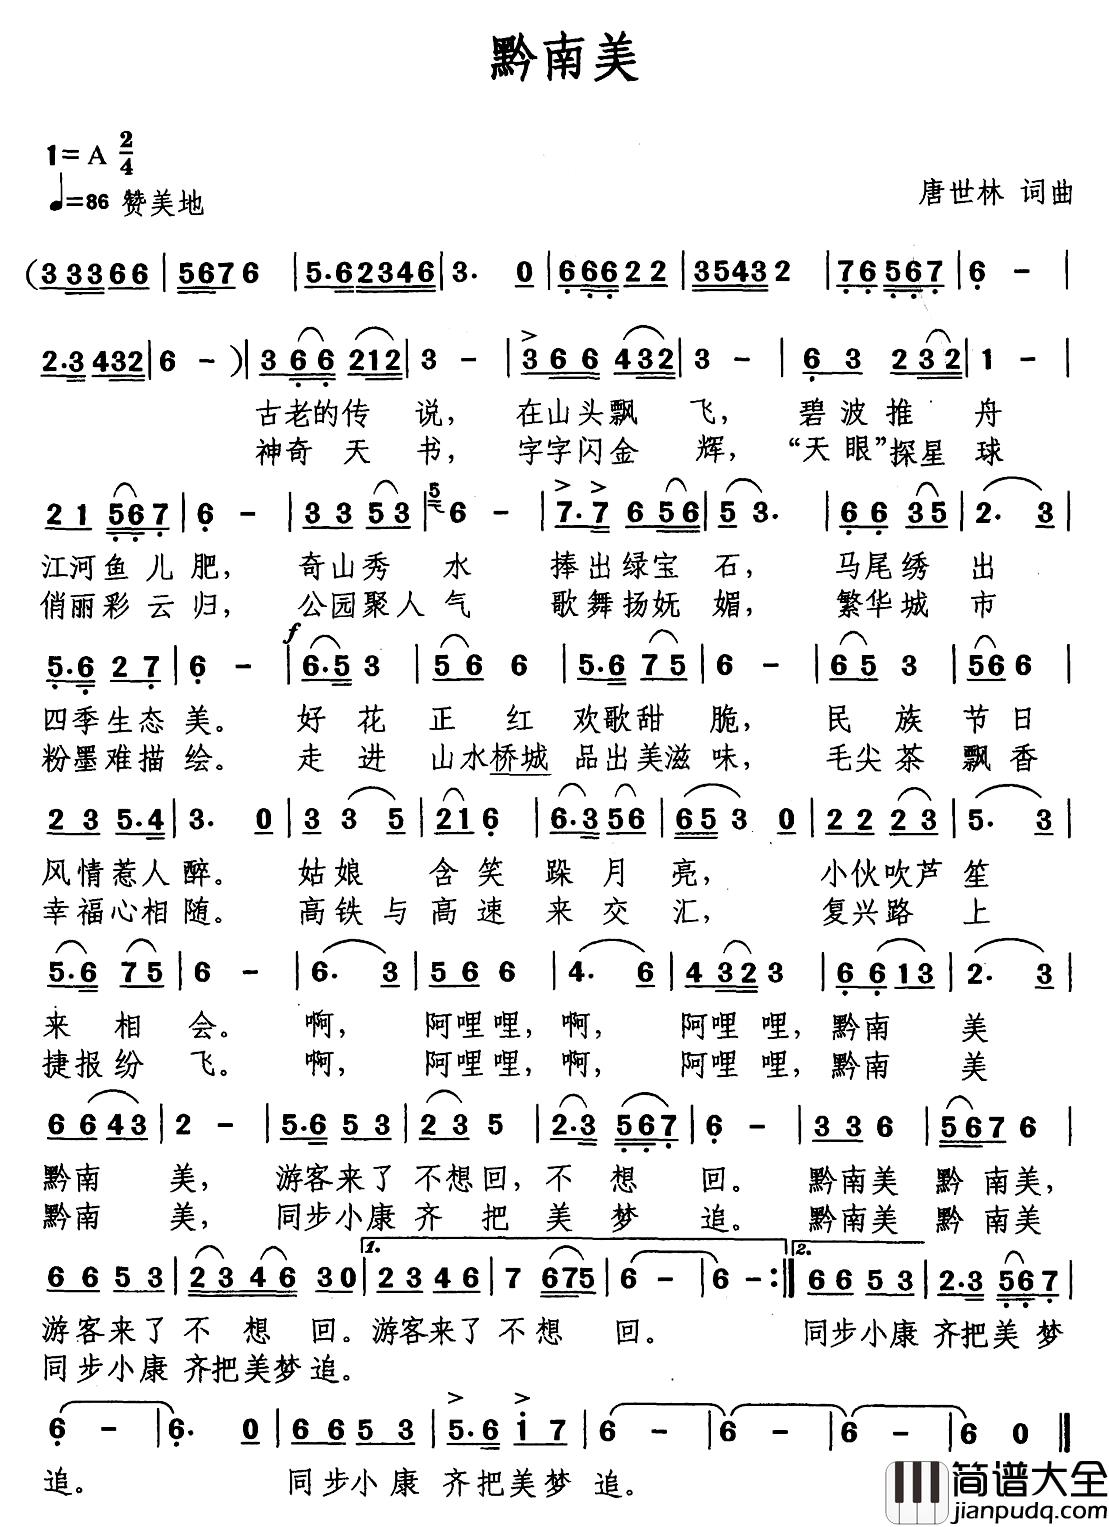 黔南美
1=A 2/4
♩=86 赞美地
唐世林 词曲
(3 3 3 6 6 | 5 6 7 6 | 5·6 2 3 4 6 | 3· 0 | 6 6 6 2 2 | 3 5 4 3 2 | 7 6 5 6 7 | 6 - |
2·3 4 3 2 | 6 - )| 3 6 6 2 1 2 | 3 - | 3 6 6 4 3 2 | 3 - | 6 3 2 3 2 | 1 - |
古老的传 说, 在山头飘 飞, 碧波推 舟
神奇天 书, 字字闪金 辉, “天眼”探星 球
2 1 5 6 7 | 6 - | 3 3 5 3 | 5 6 - | 7·7 6 5 6 | 5 3· | 6 6 3 5 | 2· 3 |
江河鱼儿肥, 奇山秀 水 捧出绿宝 石, 马尾绣 出
俏丽彩云归, 公园聚人气 歌舞扬妩 媚, 繁华城 市
f
5·6 2 7 | 6 - | 6·5 3 | 5 6 6 | 5·6 7 5 | 6 - | 6 5 3 | 5 6 6 |
四季生态美。 好花正红 欢歌甜 脆, 民族节日
粉墨难描绘。 走进山水桥城 品出美滋味, 毛尖茶飘香
2 3 5·4 | 3· 0 | 3 3 5 | 2 1 6 | 6·3 5 6 | 6 5 3 0 | 2 2 2 3 | 5· 3 |
风情惹人醉。 姑娘 含笑跺月 亮, 小伙吹芦 笙
幸福心相随。 高铁与高速来交 汇, 复兴路 上
5·6 7 5 | 6 - | 6· 3 | 5 6 6 | 4· 6 | 4 3 2 3 | 6 6 1 3 | 2· 3 |
来相会。 啊, 阿哩哩, 啊, 阿哩哩, 黔南 美
捷报纷飞。 啊, 阿哩哩, 啊, 阿哩哩, 黔南 美
6 6 4 3 | 2 - | 5·6 5 3 | 2 3 5 | 2·3 5 6 7 | 6 - | 3 3 6 | 5 6 7 6 |
黔南 美, 游客来了不想回, 不想 回。 黔南美 黔南美,
黔南 美, 同步小康齐把美梦 追。 黔南美 黔南美
6 6 5 3 | 2 3 4 6 3 0 | 1. 2 3 4 6 | 7 6 7 5 | 6 - | 6 - :‖ 2. 6 6 5 3 | 2·3 5 6 7 |
游客来了不想 回。游客来了不想 回。 同步小康 齐把美梦
同步小康 齐把美梦追。
6 - | 6· 0 | 6 6 5 3 | 5·6 1 7 | 6 - | 6 - | 6 - | 6 0 ‖
追。 同步小康 齐把美梦 追。
简谱大全
jianpudq.com